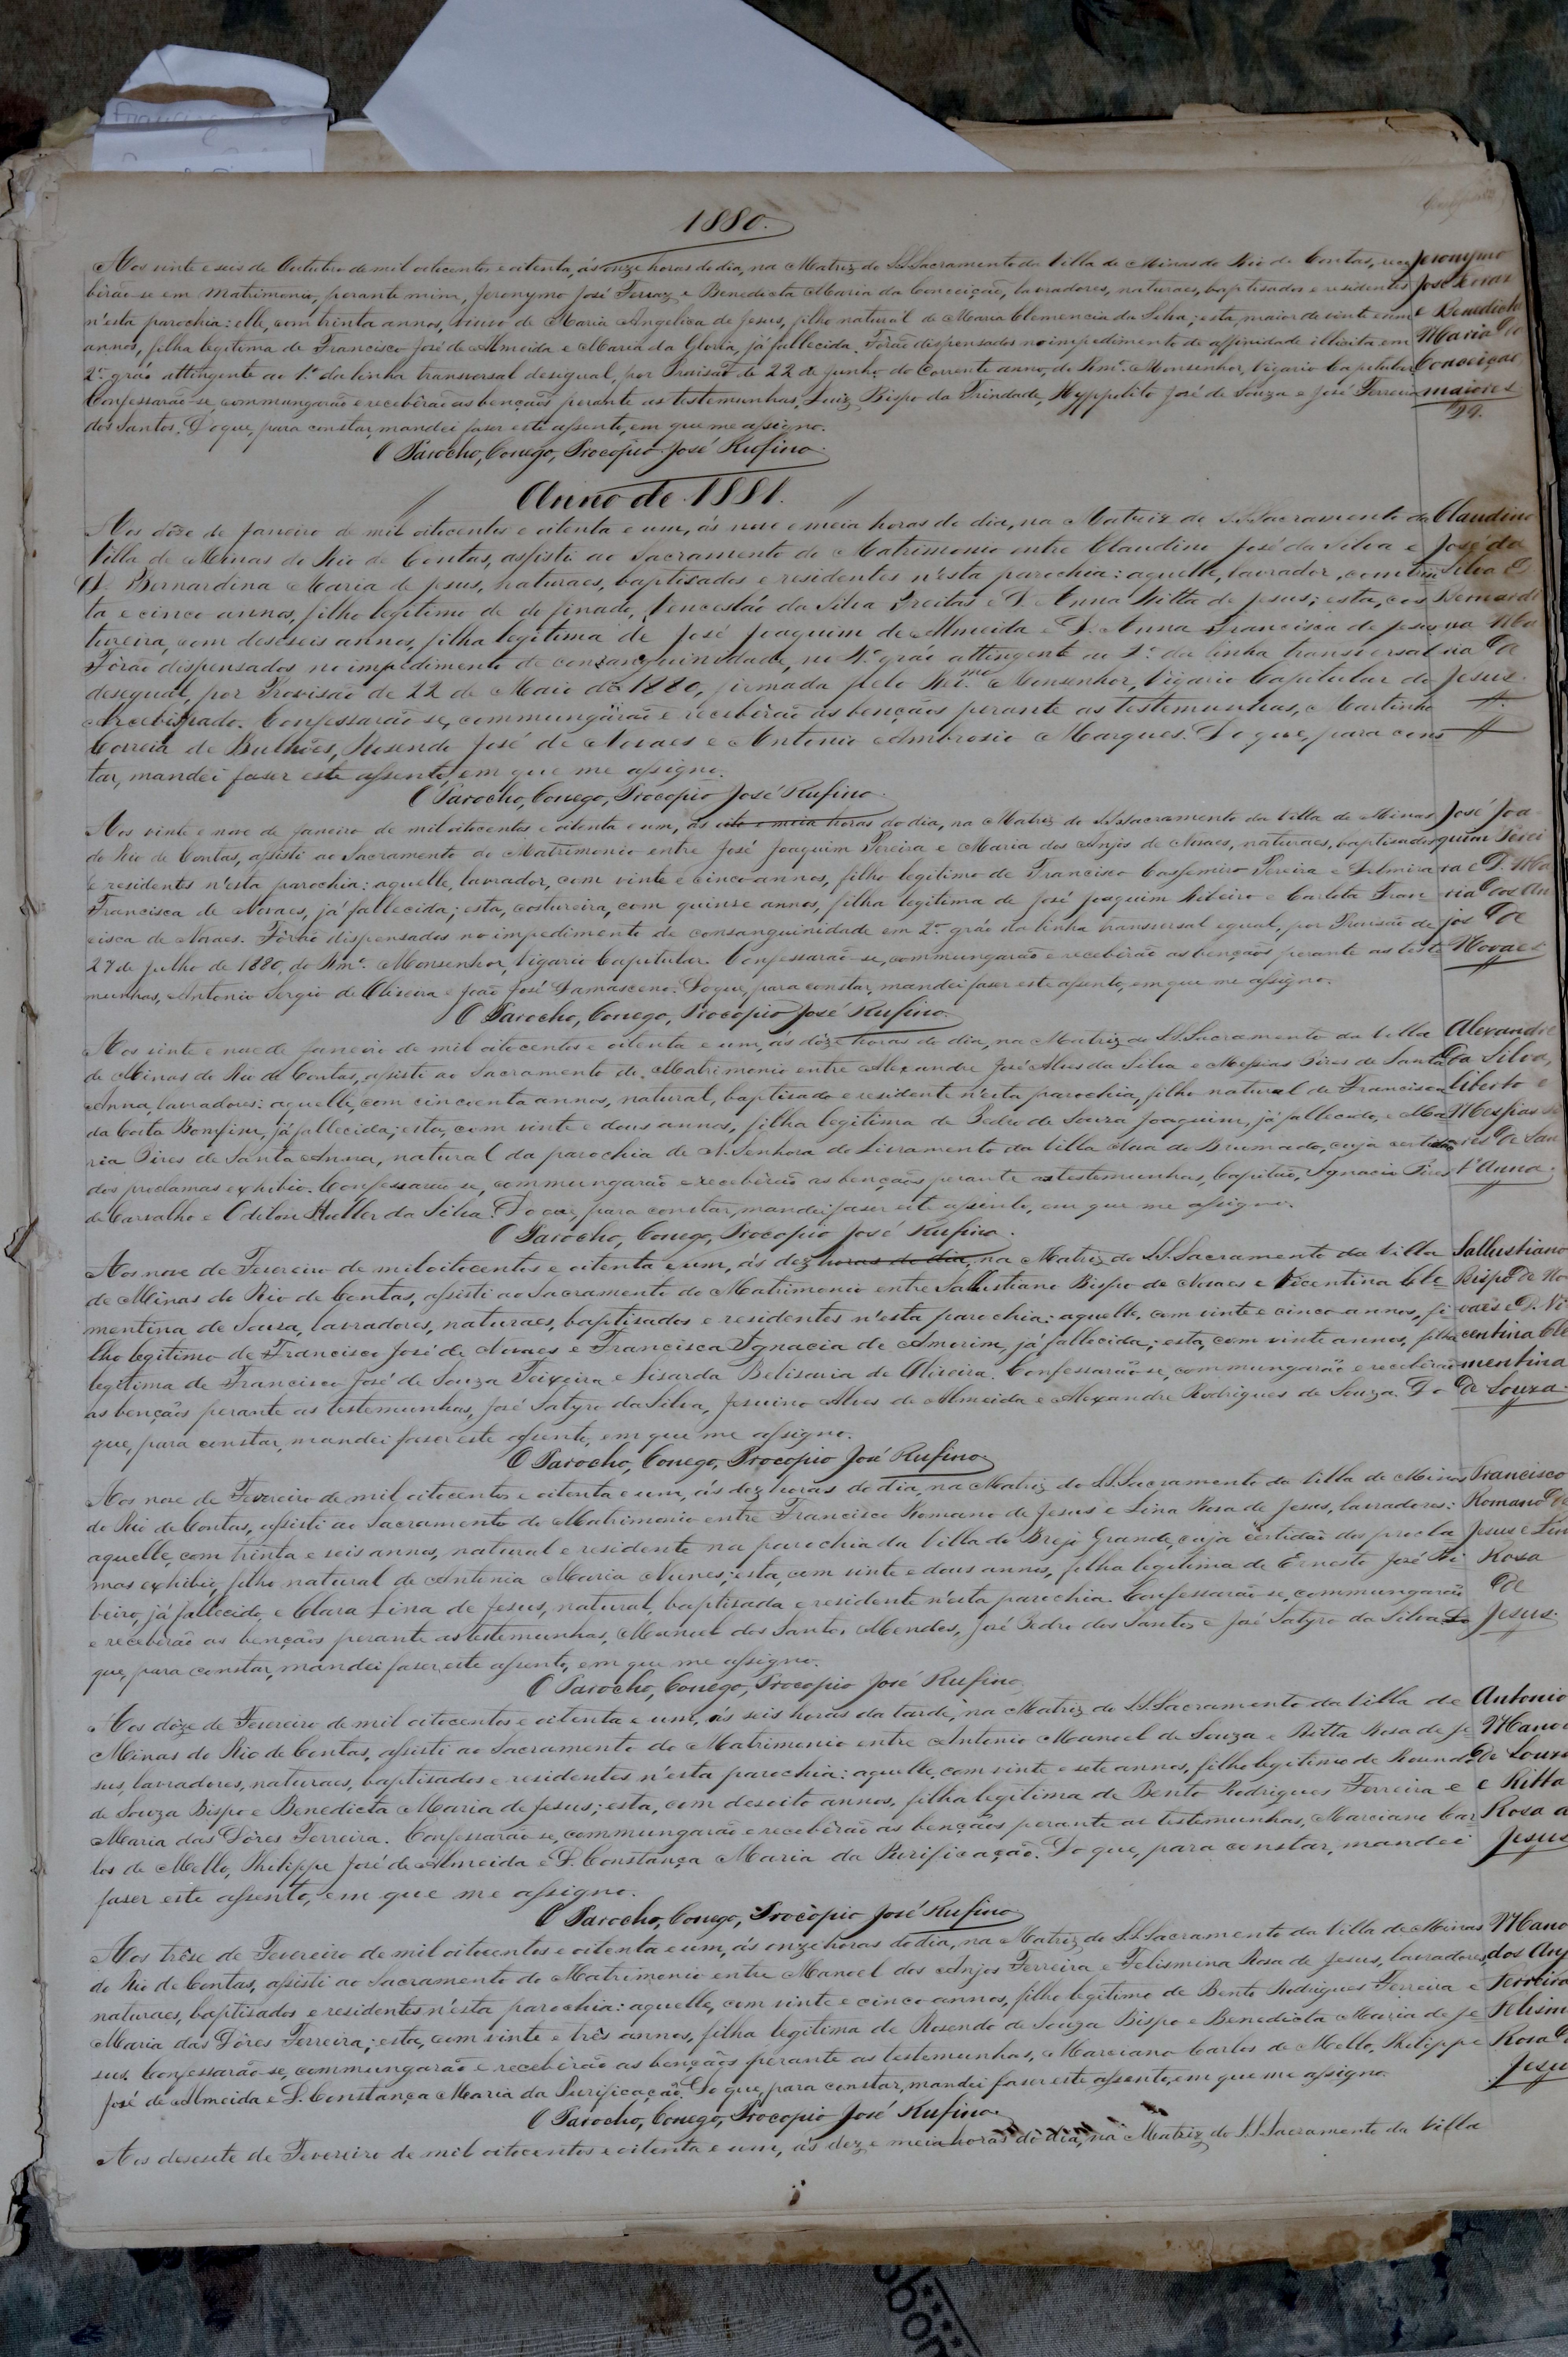 1880.
Aos vinte e seis de Outubro de mil oitocentos e oitenta, ás onze horas do dia, na Matriz do SS. Sacramento da Villa de Minas do Rio de Contas, rece
bêrão-se em Matrimonio, perante mim, Jeronymo José Ferraz e Benedicta Maria da Conceição, lavradores, naturaes, baptisados e residentes
n'esta parochia: elle, com trinta annos, viuvo de Maria Angelica de Jesus, filho natural de Maria Clemencia da Silva; esta, maior de vinte e um
annos, filha legitima de Francisco José de Almeida e Maria da Gloria, já fallecida. Fôrão dispensados no impedimento de affinidade illicita em
2º. gráo attingente ao 1º. da linha transversal desigual, por Provisão de 22 de Junho do Corrente anno, do Rmº. Monsenhor, Vigario Capitular
Confessarão-se, commungarão e recebêrão as bençãos perante as testemunhas, Luiz Bispo da Trindade, Hyppolito José de Souza e José Ferreira
dos Santos. Do que, para constar, mandei faser este assento, em que me assigno.
O Parocho, Conego, Procopio José Rufino.
Jeronymo
José Ferraz
e Benedicta
Maria da
Conceição
maiores
Anno de 1881.
Aos dôze de Janeiro de mil oitocentos e oitenta e um, ás nove e meia horas do dia, na Matriz do SS. Sacramento da
Villa de Minas do Rio de Contas, assisti ao Sacramento do Matrimonio entre Claudino José da Silva e
D. Bernardina Maria de Jesus, naturaes, baptisados e residentes n'esta parochia: aquelle, lavrador, com trin
ta e cinco annos, filho legitimo de do finado, Vencesláo da Silva Freitas e D. Anna Ritta de Jesus; esta, cos
tureira, com deseseis annos, filha legitima de José Joaquim de Almeida e D. Anna Francisca de Jesus
Fôrão dispensados no impedimento de consanguinidade, no 4º. gráo attingente ao 3º. da linha transversal
desegual, por Provisão de 22 de Maio de 1880, firmada pelo Revmo. Monsenhor, Vigario Capitular do
Arcebispado. Confessarão-se, commungárão e recebêrão as bençãos perante as testemunhas, Martinho
Correia de Bulhões, Rosendo José de Novaes e Antonio Ambrosio Marques. Do que, para cons
tar, mandei faser este assento, em que me assigno.
O Parocho, Conego, Procopio José Rufino.
Claudino
José da
Silva e
Bernardi
na Ma
ria de
Jesus.
Aos vinte e nove de Janeiro de mil oitocentos e oitenta e um, ás oito e meia horas do dia, na Matriz do SS. Sacramento da Villa de Minas
do Rio de Contas, assisti ao Sacramento do Matrimonio entre José Joaquim Pereira e Maria dos Anjos de Novaes, naturaes, baptisados
e residentes n'esta parochia: aquelle, lavrador, com vinte e cinco annos, filho legitimo de Francisco Cassemiro Pereira e Delmira
Francisca de Novaes, já fallecida; esta, costureira, com quinse annos, filha legitima de José Joaquim Ribeiro e Carlota Fran
cisca de Novaes. Fôrão dispensados no impedimento de consanguinidade em 2º. gráo da linha transversal egual, por Provisão de
27 de Julho de 1880, do Rmº. Monsenhor, Vigario Capitular. Confessarão-se, commungarão e recebêrão as bençãos perante as teste
munhas, Antonio Sergio de Oliveira e João José Damasceno. Do que, para constar, mandei faser este assento, em que me assigno.
O Parocho, Conego, Procopio José Rufino.
José Joa
quim Perei
ra e D. Ma
ria dos An
jos de
Novaes
Aos vinte e nove de Janeiro de mil oitocentos e oitenta e um, ás dôze horas do dia, na Matriz do SS. Sacramento da Villa
de Minas do Rio de Contas, assisti ao Sacramento do Matrimonio entre Alexandre José Alves da Silva e Messias Pires de Santa
Anna, lavradores: aquelle, com cincoenta annos, natural, baptisado e residente n'esta parochia, filho natural de Francisca
da Costa Bomfim, já fallecida; esta, com vinte e dous annos, filha legitima de Pedro de Souza Joaquim, já fallecido, e Ma
ria Pires de Santa Anna, natural da parochia de N. Senhora do Livramento da Villa do Brumado, cuja certidão
dos proclamas exhibio. Confessarão-se, commungarão e recebêrão as bençãos perante as testemunhas, Capitão, Ignacio Pires
de Carvalho e Odilon Muller da Silva. Do que, para constar, mandei faser este assento, em que me assigno.
O Parocho, Conego, Procopio José Rufino.
Alexandre
da Silva,
liberto e
Messias Pi
res de San
t'Anna.
Aos nove de Fevereiro de mil oitocentos e oitenta e um, ás dez horas do dia, na Matriz do SS. Sacramento da Villa
de Minas do Rio de Contas, assisti ao Sacramento do Matrimonio entre Sallustiano Bispo de Novaes e Vicentina Cle
mentina de Sousa, lavradores, naturaes, baptisados e residentes n'esta parochia: aquelle, com vinte e cinco annos, fi
lho legitimo de Francisco José de Novaes e Francisca Ignacia de Amorim, já fallecida; esta, com vinte annos, filha
legitima de Francisco José de Souza Teixeira e Lisarda Belisaria de Oliveira. Confessarão-se, commungarão e recebêrão
as bençãos perante as testemunhas, José Satyro da Silva, Jesuino Alves de Almeida e Alexandre Rodrigues de Souza. Do
que, para constar, mandei faser este assento, em que me assigno.
O Parocho, Conego, Procopio José Rufino.
Sallustiano
Bispo de No
vaes e D. Vi
centina Cle
mentina
de Souza.
Aos nove de Fevereiro de mil oitocentos e oitenta e um, ás dez horas do dia, na Matriz do SS. Sacramento da Villa de Minas
do Rio de Contas, assisti ao Sacramento do Matrimonio entre Francisco Romano de Jesus e Lina Rosa de Jesus, lavradores:
aquelle, com trinta e seis annos, natural e residente na parochia da Villa do Brejo Grande, cuja certidão dos procla
mas exhibio, filho natural de Antonia Maria Nunes; esta, com vinte e dous annos, filha legitima de Ernesto José Ri
beiro, já fallecido, e Clara Lina de Jesus, natural, baptisada e residente n'esta parochia. Confessarão-se, commungarão
e receberão as bençãos perante as testemunhas, Manoel dos Santos Mendes, José Pedro dos Santos e José Satyro da Silva. Do
que, para constar, mandei faser este assento, em que me assigno.
O Parocho, Conego, Procopio José Rufino.
Francisco
Romano de
Jesus e Lin
Rosa
de
Jesus.
Aos dôze de Fevereiro de mil oitocentos e oitenta e um, ás seis horas da tarde, na Matriz do SS. Sacramento da Villa de
Minas do Rio de Contas, assisti ao Sacramento do Matrimonio entre Antonio Manoel de Souza e Ritta Rosa de Je
sus, lavradores, naturaes, baptisados e residentes n'esta parochia: aquelle, com vinte e sete annos, filho legitimo de Rosendo
de Souza Bispo e Benedicta Maria de Jesus; esta, com desoito annos, filha legitima de Bento Rodrigues Ferreira e
Maria das Dôres Ferreira. Confessarão-se, commungarão e recebêrão as bençãos perante as testemunhas, Marciano Car
los de Mello, Philippe José de Almeida e D. Constança Maria da Purificação. Do que, para constar, mandei
faser este assento, em que me assigno.
O Parocho, Conego, Procopio José Rufino.
Antonio
Manoe
de Souza
e Ritta
Rosa d
Jesus
Aos trêse de Fevereiro de mil oitocentos e oitenta e um, ás onze horas do dia, na Matriz do SS. Sacramento da Villa de Minas
do Rio de Contas, assisti ao Sacramento do Matrimonio entre Manoel dos Anjos Ferreira e Felismina Rosa de Jesus, lavradores,
naturaes, baptisados e residentes n'esta parochia: aquelle, com vinte e cinco annos, filho legitimo de Bento Rodrigues Ferreira e
Maria das Dôres Ferreira; esta, com vinte e três annos, filha legitima de Rosendo de Souza Bispo e Benedicta Maria de Je
sus. Confessarão-se, commungarão e recebêrão as bençãos perante as testemunhas, Marciano Carlos de Mello, Philippe
José de Almeida e D. Constança Maria da Purificação. Do que, para constar, mandei faser este assento, em que me assigno.
O Parocho, Conego, Procopio José Rufino.
Mano
dos Anj
Ferreira
Felism
Rosa d
Jesu
Aos desesete de Fevereiro de mil oitocentos e oitenta e um, ás dez e meia horas do dia, na Matriz do SS. Sacramento da Villa